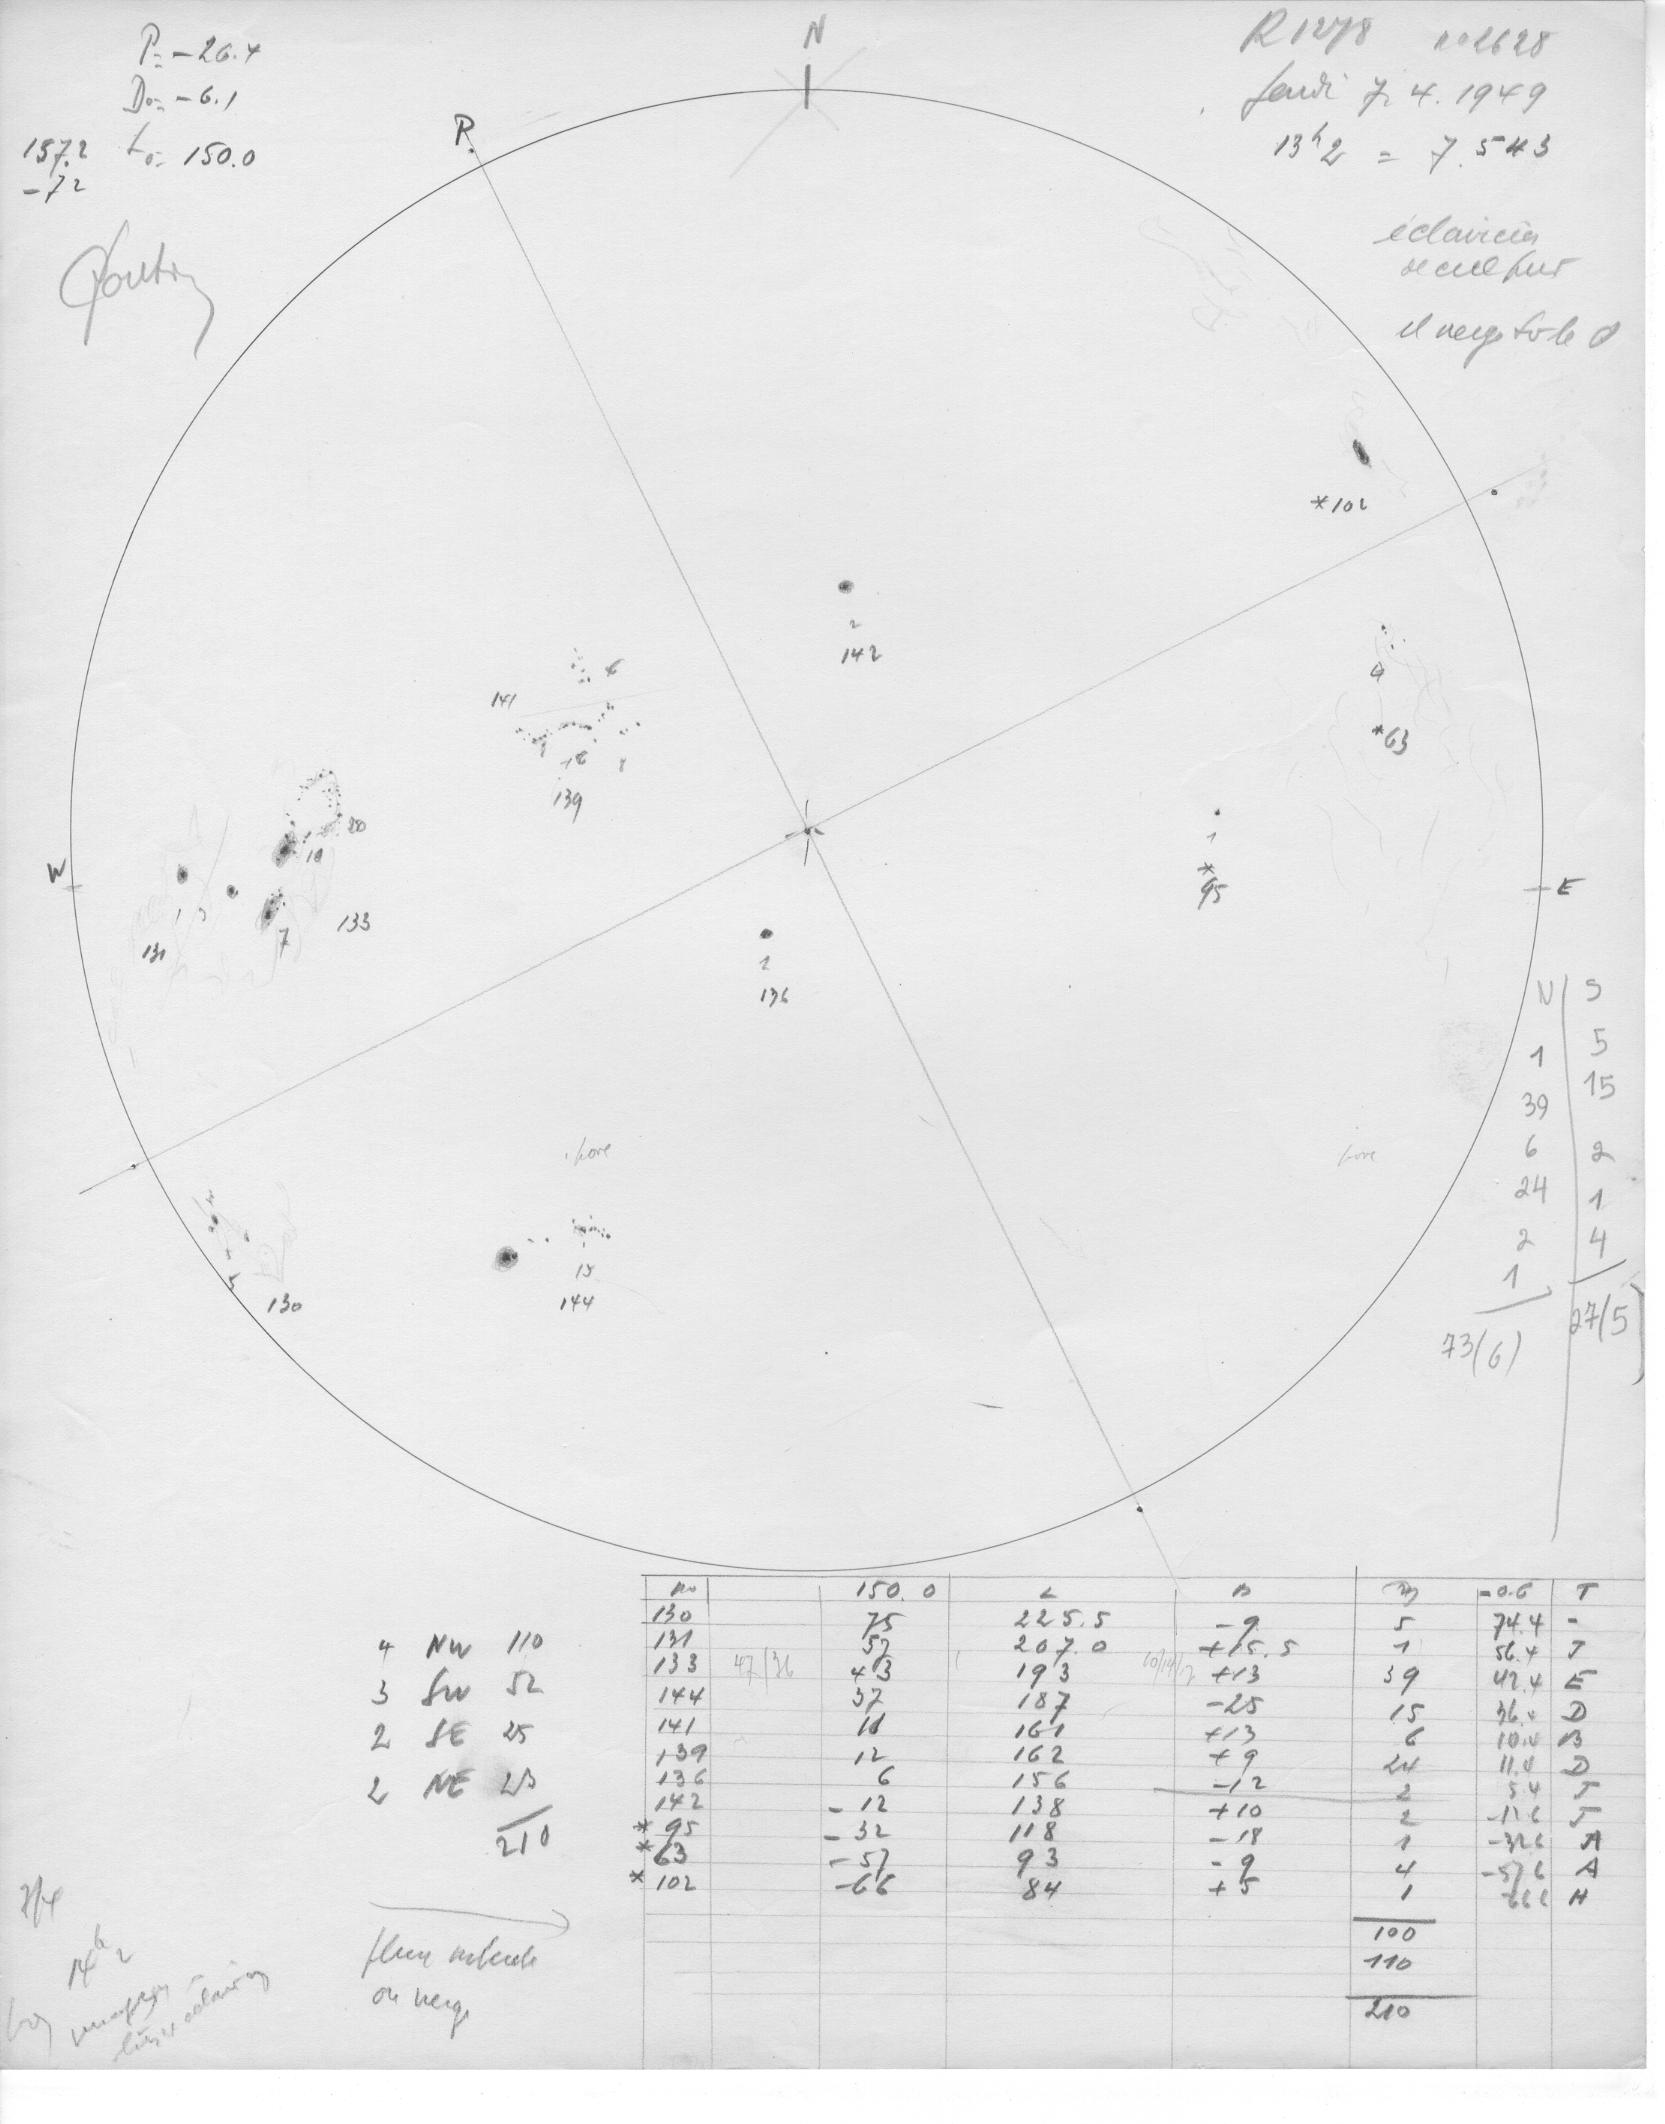 P= -26.4
D0= -6.1
L0= 150.0
157.2
-7.2
N
R 1278 no 2628
Jeudi 7. 4. 1949
13h2 = 7.543
éclaircies
P.
*102
2
142
6
141
16
8
139
4
*63
20
10
1
*
95
W
E
1
7
133
131
1
136
N S
1 5
39 15
6 2
24 1
2 4
1
73(6) 27(5)
pore
pore
5
130
15
144
No 150.0 L B -0.6 T
130 75 225.5 -9 5 74.4 -
131 57 207.0 +15.5 1 56.4 J
133 47/36 43 193 +13 39 42.4 E
144 37 187 -25 15 36.4 D
141 11 161 +13 6 10.4 B
139 12 162 +9 24 11.4 D
136 6 156 -12 2 5.4 J
142 -12 138 +10 2 -12.6 J
* 95 -32 118 -18 1 -32.6 A
* 63 -57 93 -9 4 -57.6 A
* 102 -66 84 +5 1 -66.6 H
100
110
210
4 NW 110
3 SW 52
2 SE 25
2 NE 23
210
7/4
14h2